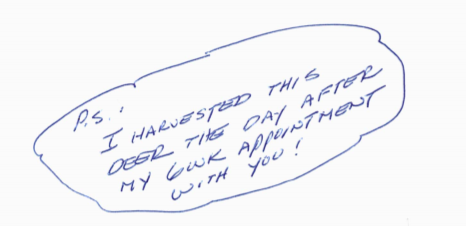 P.S.:
I HARVESTED THIS
DEER THE DAY AFTER
MY 6WK APPOINTMENT
WITH YOU!